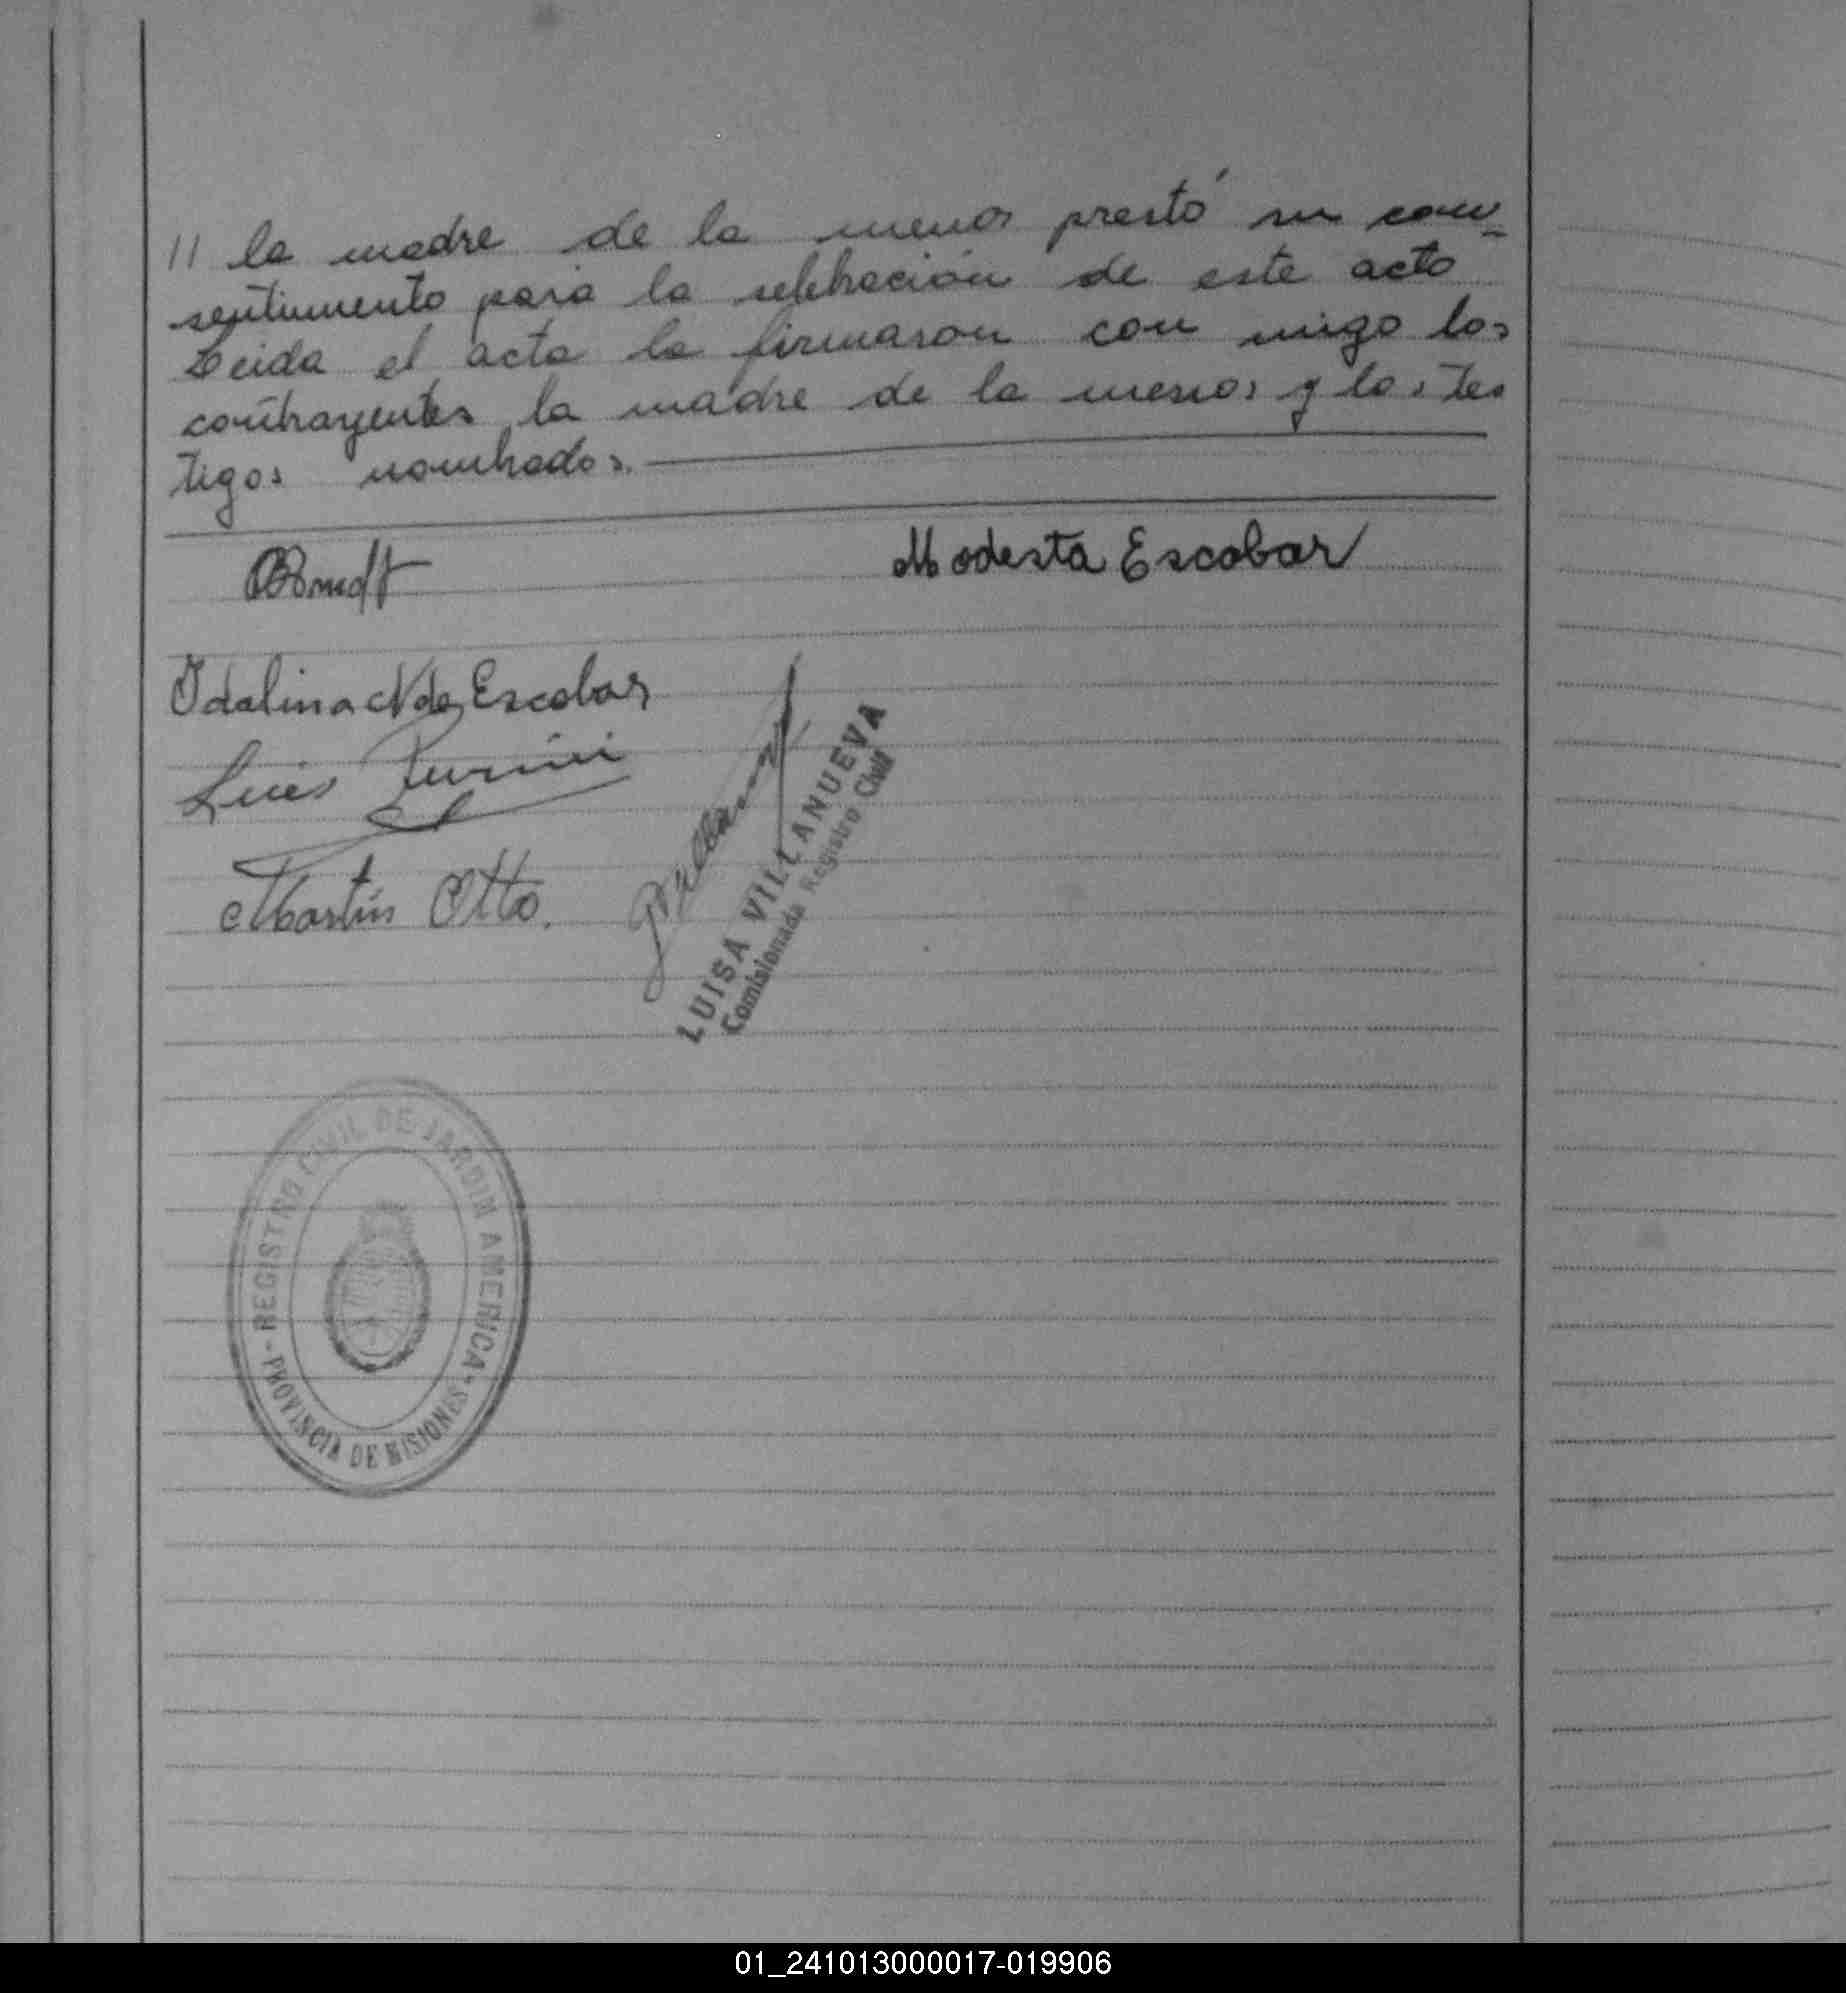 // la madre de la menor prestó su con-
sentimiento para la selebración de este acto
Leida el acta la firmaron con migo los
contrayentes la madre de la menor y los tes
tigos nombrados.
Modesta Escobar
Idalina N de Escobar
Luis
Martín Otto.
LUISA VILLANUEVA
Comisionada Registro Civil
REGISTRO CIVIL DE JARDIN AMERICA -
PROVINCIA DE MISIONES -
01_241013000017-019906